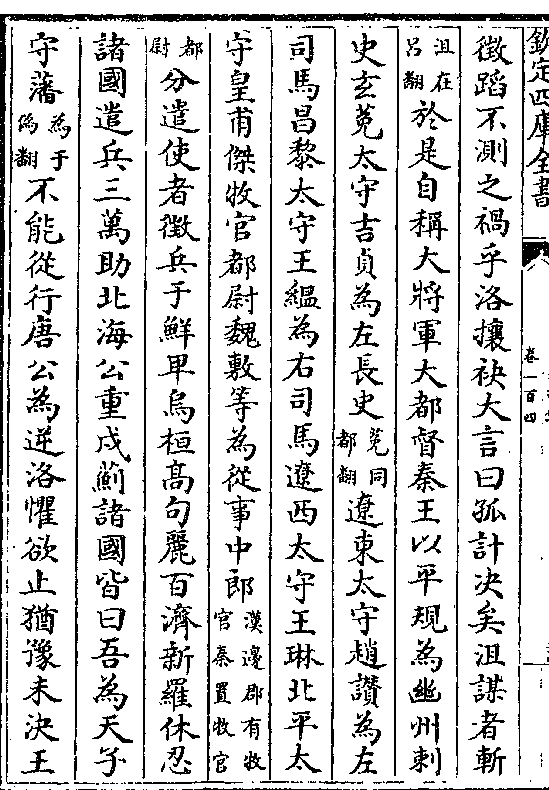 欽定四庫全書
卷一百四
徵蹈不測之禍乎洛攘袂大言曰孤計决矣沮謀者斬
沮在吕翻於是自稱大將軍大都督秦王以平規為幽州刺
史玄菟太守吉貞為左長史菟同都翻遼東太守趙讚為左
司馬昌黎太守王緼為右司馬遼西太守王琳北平太
守皇甫傑牧官都尉魏敷等為從事中郎漢邊郡有牧官秦置牧官
都尉分遣使者徵兵于鮮卑烏桓髙句麗百濟新羅休忍
諸國遣兵三萬助北海公重戍薊諸國皆曰吾為天子
守藩為于偽翻不能從行唐公為逆洛懼欲止猶豫未決王